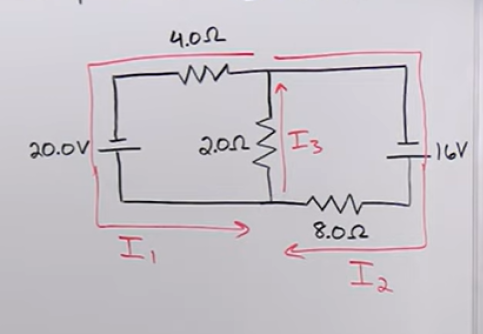 4.0Ω
20.0V
2.0Ω
I₃
16V
8.0Ω
I₁
I₂